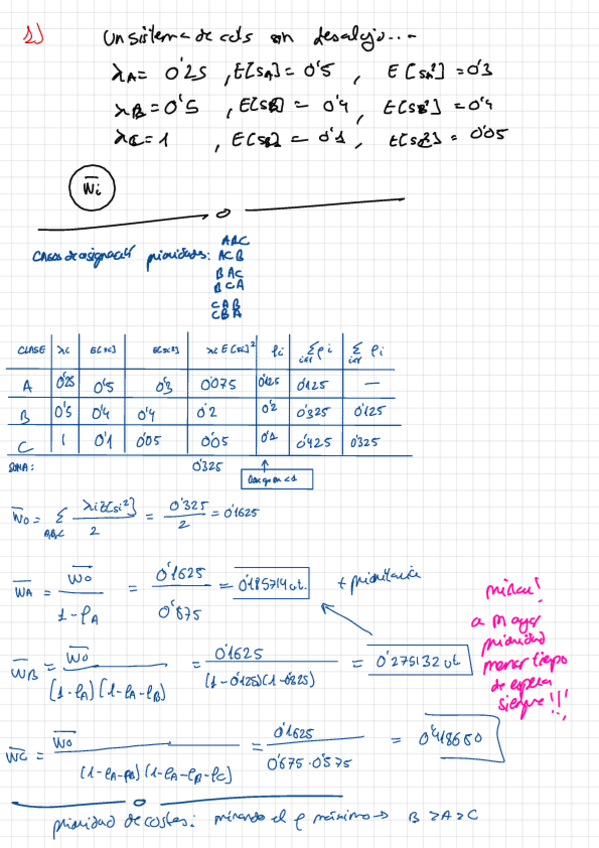 1)
Un sistema de cols sin desalojo...
λA = 0'25 , E[SA] = 0'5 , E[SA²] = 0'3
λB = 0'5 , E[SB] = 0'4 , E[SB²] = 0'4
λC = 1 , E[SC] = 0'1 , E[SC²] = 0'05
W̄i
Casos de asignación prioridades: ABC
ACB
BAC
BCA
CAB
CBA
CLASE λi E[Si] E[Si²] λi E[Si]² ρi Σρi Σρi
A 0'25 0'5 0'3 0'075 0'125 0'125 —
B 0'5 0'4 0'4 0'2 0'2 0'325 0'125
C 1 0'1 0'05 0'05 0'1 0'425 0'325
SUMA: 0'325
W̄o = Σ A,B,C λi E[Si²] / 2 = 0'325 / 2 = 0'1625
W̄A = W̄o / 1-ρA = 0'1625 / 0'875 = 0'185714 u.t. + prioritaria
W̄B = W̄o / (1-ρA)(1-ρA-ρB) = 0'1625 / (1-0'125)(1-0'325) = 0'275132 u.t.
W̄C = W̄o / (1-ρA-ρB)(1-ρA-ρB-ρC) = 0'1625 / 0'675·0'575 = 0'418680
mirar!
a mayor
prioridad
menor tiempo
de espera
siempre!!!
prioridad de costes: mirando el ρ máximo → B > A > C